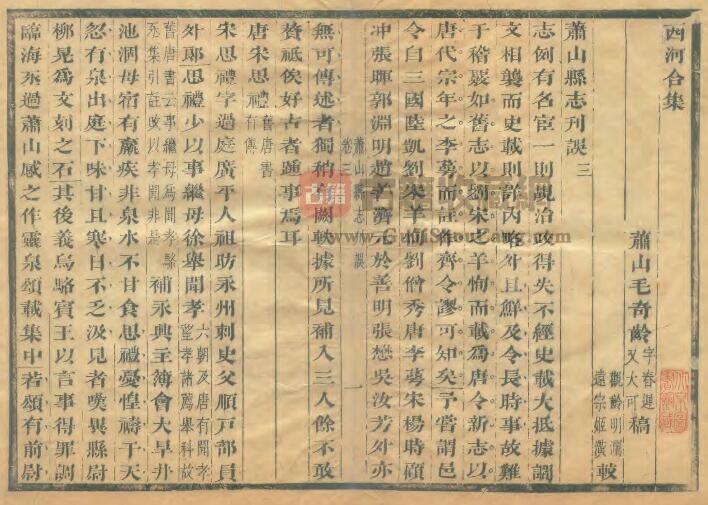 西河合集
蕭山毛奇齡字春遲又大可稿
遠宗姬潢較
蕭山縣志刊誤三
志例有名宦一則覘治政得失不經史載大抵據謁
文相襲而史載則詳內略外且鮮及令長時事故難
于稽覈如舊志以劉宋之羊恂而載爲唐令新志以
唐代宗年之李蕚而註作齊令謬可知矣予嘗謂邑
令自三國陸凱劉宋羊恂劉僧秀唐李蕚宋楊時顧
冲張暉郭淵明趙善濟元於善明張懋吳汝芳外亦
蕭山縣志 誤
卷三
一
無可傳述者獨稍有闕軼據所見補入三人餘不敢
贅祗俟好古者踵事焉耳
唐宋思禮舊唐書有傳
宋思禮字過庭廣平人祖昉永州刺史父順戶部員
外郎思禮少以事繼母徐舉聞孝六朝及唐有聞孝
望孝諸薦舉科故
舊唐書云事繼母爲聞孝
丞集引註以孝聞非是補永興主簿會大旱井
池涸母宿有羸疾非泉水不甘食思禮憂惶禱于天
忽有泉出庭下味甘且寒日不乏汲見者嘆異縣尉
柳晃爲文刻之石其後義烏駱賓王以言事得罪謫
臨海丞過蕭山感之作靈泉頌載集中若頌有前尉
古籍
www.GujiShouCang.com